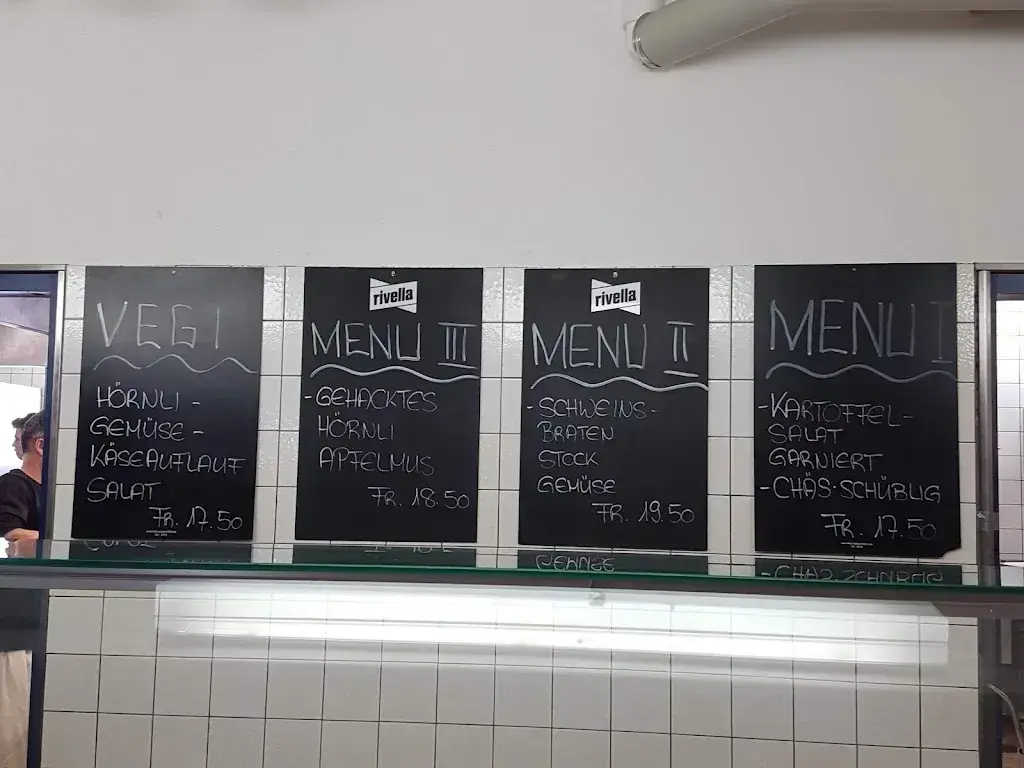 VEGI
HÖRNLI -
GEMÜSE -
KÄSEAUFLAUF
SALAT
FR. 17.50
rivella
MENU III
- GEHACKTES
HÖRNLI
APFELMUS
FR. 18.50
rivella
MENU II
- SCHWEINS-
BRATEN
STOCK
GEMÜSE
FR. 19.50
MENU I
- KARTOFFEL-
SALAT
GARNIERT
- CHÄS-SCHÜBLIG
FR. 17.50